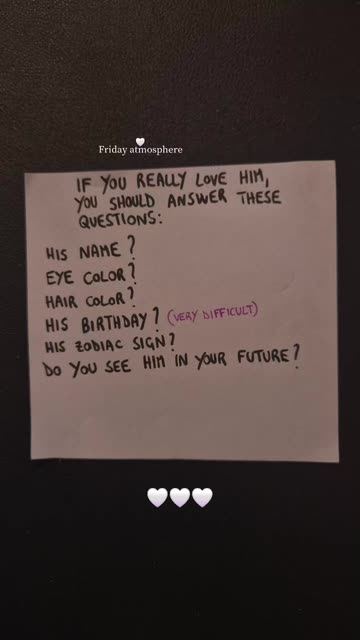 Friday atmosphere
IF YOU REALLY LOVE HIM,
YOU SHOULD ANSWER THESE
QUESTIONS:
HIS NAME?
EYE COLOR?
HAIR COLOR?
HIS BIRTHDAY? (VERY DIFFICULT)
HIS ZODIAC SIGN?
DO YOU SEE HIM IN YOUR FUTURE?